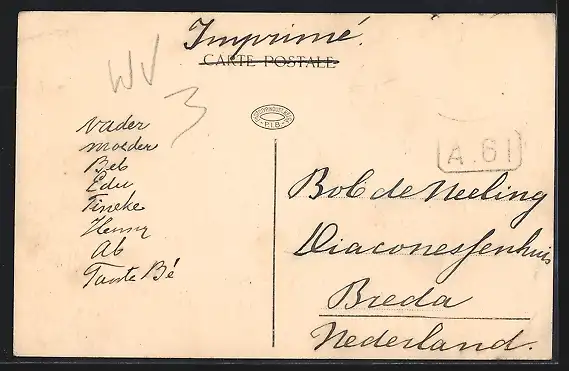 Imprimé.
CARTE POSTALE
WV
3
P.I.B.
A.61
Vader
Moeder
Beb
Edu
Tineke
Henny
Ab
Tante Bé
Bob de Neeling
Diaconessenhuis
Breda
Nederland.